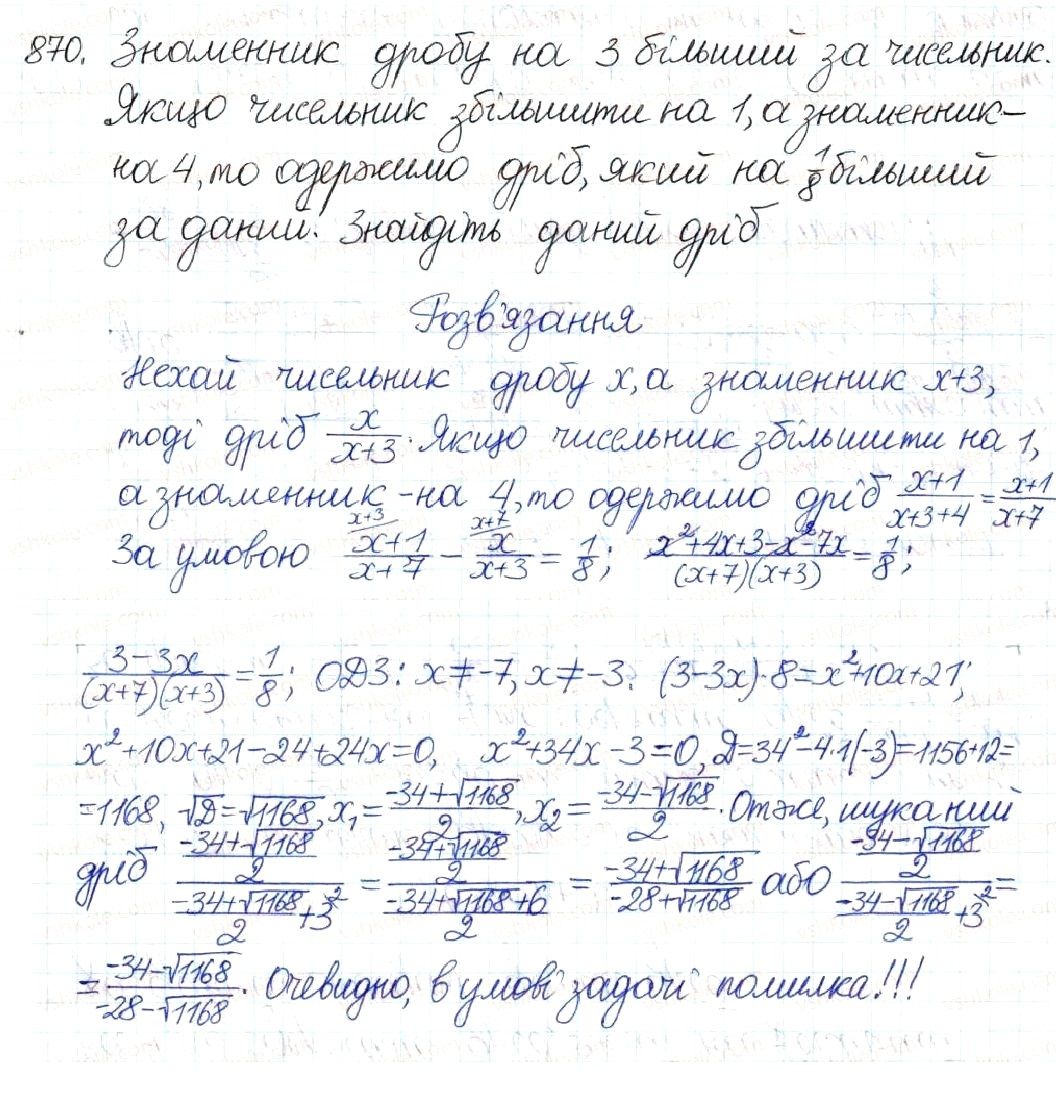 870. Знаменник дробу на 3 більший за чисельник.
Якщо чисельник збільшити на 1, а знаменник –
на 4, то одержимо дріб, який на 1/8 більший
за даний. Знайдіть даний дріб
Розв'язання
Нехай чисельник дробу x, а знаменник x+3,
тоді дріб x/(x+3). Якщо чисельник збільшити на 1,
а знаменник - на 4, то одержимо дріб (x+1)/(x+3+4) = (x+1)/(x+7)
За умовою (x+1)/(x+7) ^(x+3) − x/(x+3) ^(x+7) = 1/8; (x²+4x+3−x²−7x)/((x+7)(x+3)) = 1/8;
(3−3x)/((x+7)(x+3)) = 1/8; ОДЗ: x≠−7, x≠−3. (3−3x)·8=x²+10x+21;
x²+10x+21−24+24x=0, x²+34x−3=0, D=34²−4·1(−3)=1156+12=
=1168, √D=√1168, x₁=(−34+√1168)/2, x₂=(−34−√1168)/2. Отже, шуканий
дріб ((−34+√1168)/2)/((−34+√1168)/2+3^(2)) = ((−34+√1168)/2)/((−34+√1168+6)/2) = (−34+√1168)/(−28+√1168) або ((−34−√1168)/2)/((−34−√1168)/2+3^(2)) =
= (−34−√1168)/(−28−√1168). Очевидно, в умові задачі помилка!!!